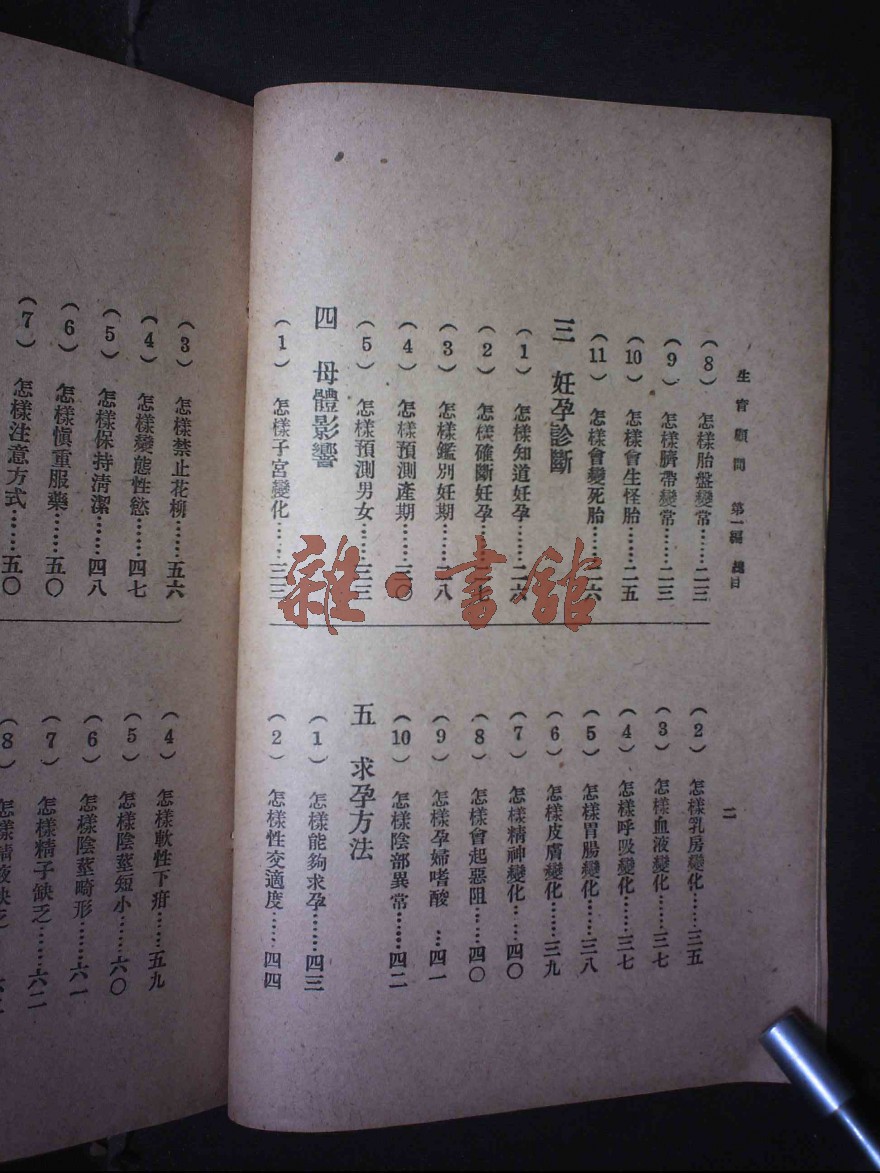 生育顧問　第一編　總目
二
（8）　怎樣胎盤變常……二三
（9）　怎樣臍帶變常……二三
（10）　怎樣會生怪胎……二五
（11）　怎樣會變死胎……二六
三　妊孕診斷
（1）　怎樣知道妊孕……二六
（2）　怎樣確斷妊孕……二七
（3）　怎樣鑑別妊期……二八
（4）　怎樣預測產期……三〇
（5）　怎樣預測男女……三三
四　母體影響
（1）　怎樣子宮變化……三三
（2）　怎樣乳房變化……三五
（3）　怎樣血液變化……三七
（4）　怎樣呼吸變化……三七
（5）　怎樣胃腸變化……三八
（6）　怎樣皮膚變化……三九
（7）　怎樣精神變化……四〇
（8）　怎樣會起惡阻……四〇
（9）　怎樣孕婦嗜酸…四一
（10）　怎樣陰部異常……四二
五　求孕方法
（1）　怎樣能夠求孕……四三
（2）　怎樣性交適度……四四
（3）　怎樣禁止花柳……五六
（4）　怎樣變態性慾……四七
（5）　怎樣保持清潔……四八
（6）　怎樣愼重服藥……五〇
（7）　怎樣注意方式……五〇
（4）　怎樣軟性下疳……五九
（5）　怎樣陰莖短小……六〇
（6）　怎樣陰莖畸形……六一
（7）　怎樣精子缺乏……六二
（8）　怎樣精液缺乏……六
雜·書館